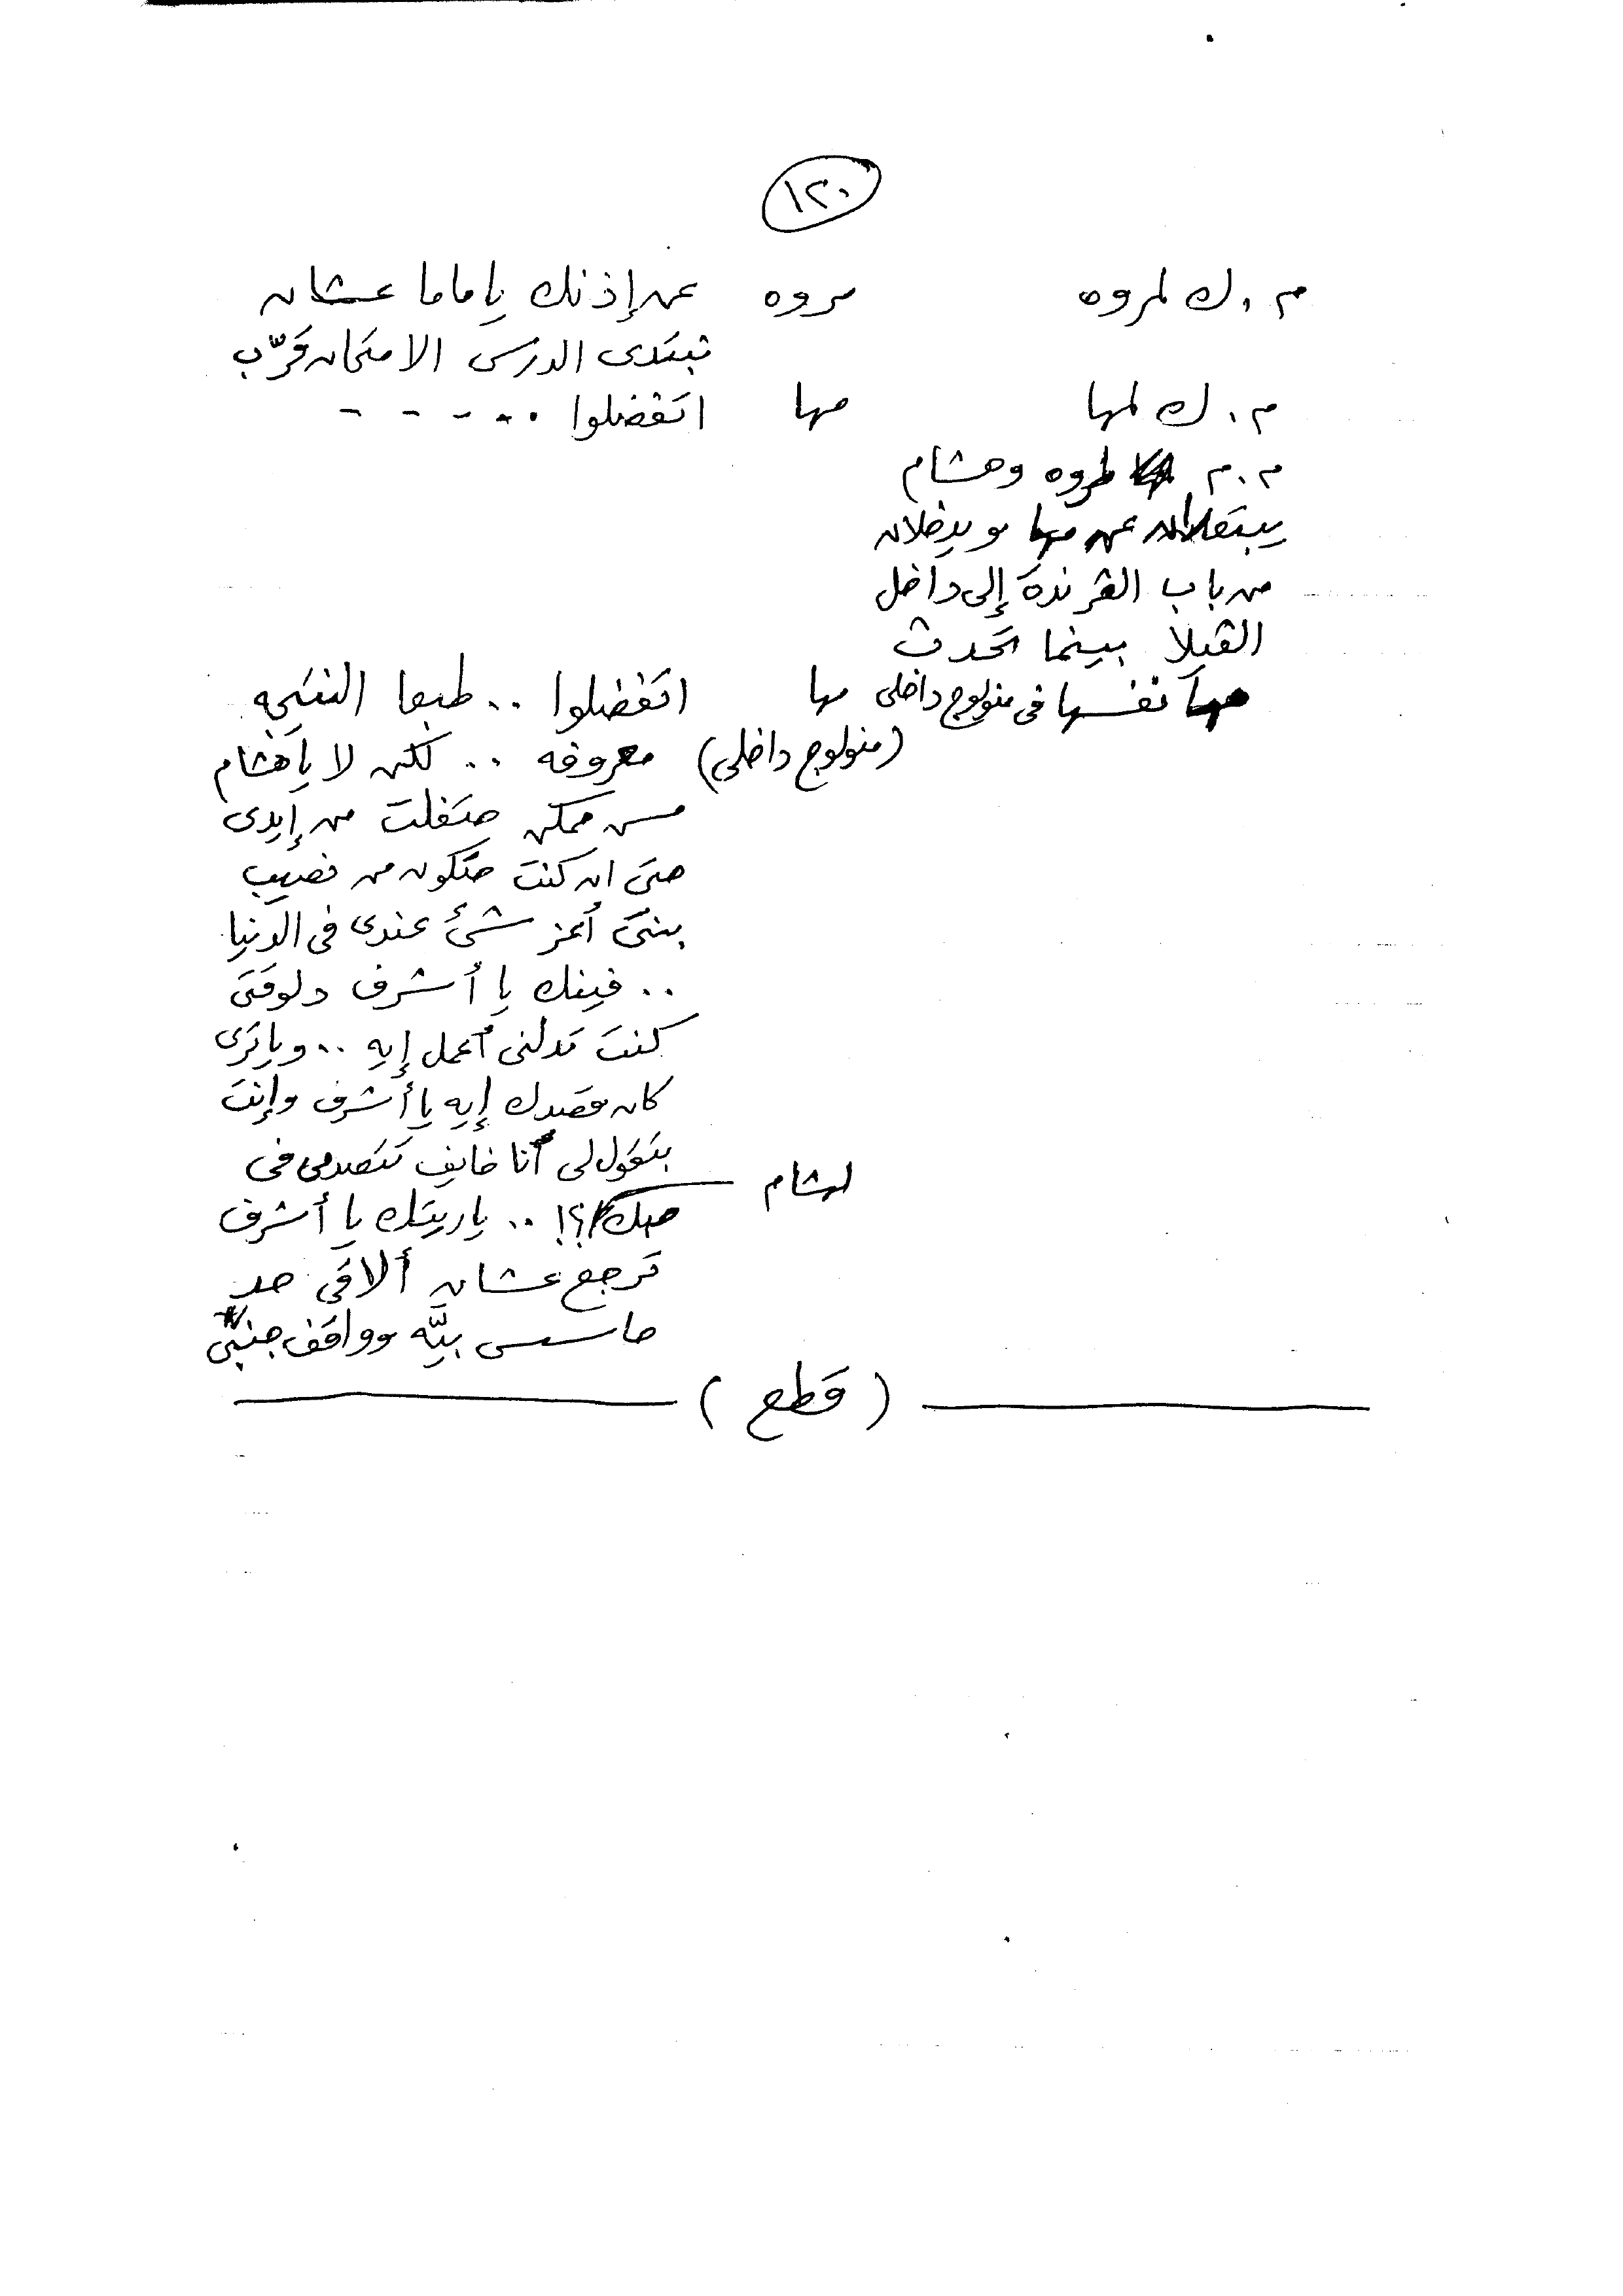 ١٢٠
م . ك لمروه    مروه    عن إذنك يا ماما عشان
نبتدى الدرس الامتحان قرّب
م . ك لمها    مها    اتفضلوا . . - - - -
م . م لمروه وهشام
يبتعدان عن مها ويدخلان
من باب الڤرندة إلى داخل
الڤيلا بينما تحدث
مها نفسها فى منولوج داخلى    مها    اتفضلوا . . طبعا النتيجه
(منولوج داخلى)    معروفه . . لكن لا يا هشام
مش ممكن حتفلت من إيدى
حتى ان كنت حتكون من نصيب
بنتى أعز شئ عندى فى الدنيا
. . فينك يا أشرف دلوقتى
كنت تدلنى أعمل إيه . . ويا ترى
كان قصدك إيه يا أشرف وإنت
بتقول لى أنا خايف تتصدمى فى
لهشام    حبك ؟! . . ياريتك يا أشرف
ترجع عشان ألاقى حد
حاسس بيّه وواقف جنبى
( قطع )